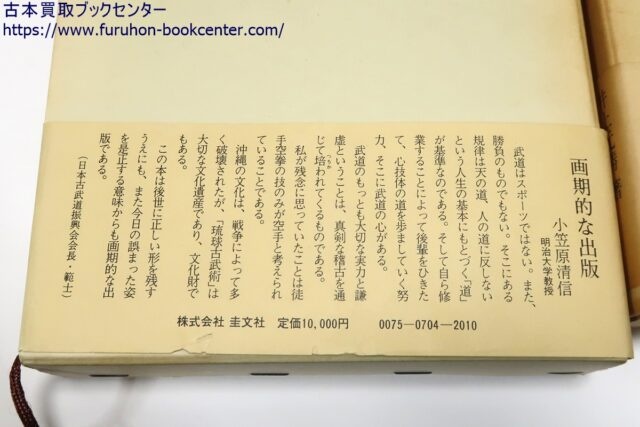 古本買取ブックセンター
https://www.furuhon-bookcenter.com/
画期的な出版
小笠原清信
明治大学教授
武道はスポーツではない。また、
勝負のものでもない。そこにある
規律は天の道、人の道に反しない
という人生の基本にもとづく「道」
が基準なのである。そして自ら修
業することによって後輩をひきた
て、心技体の道を歩ましていく努
力、そこに武道の心がある。
武道のもっとも大切な実力と謙
虚ということは、真剣な稽古を通
じて培われてくるものである。
つちか
私が残念に思っていたことは徒
手空拳の技のみが空手と考えられ
ていることである。
沖縄の文化は、戦争によって多
く破壊されたが、「琉球古武術」は
大切な文化遺産であり、文化財で
もある。
この本は後世に正しい形を残す
うえにも、また今日の誤まった姿
を是正する意味からも画期的な出
版である。
（日本古武道振興会会長・範士）
株式会社 圭文社 定価10,000円 0075―0704―2010